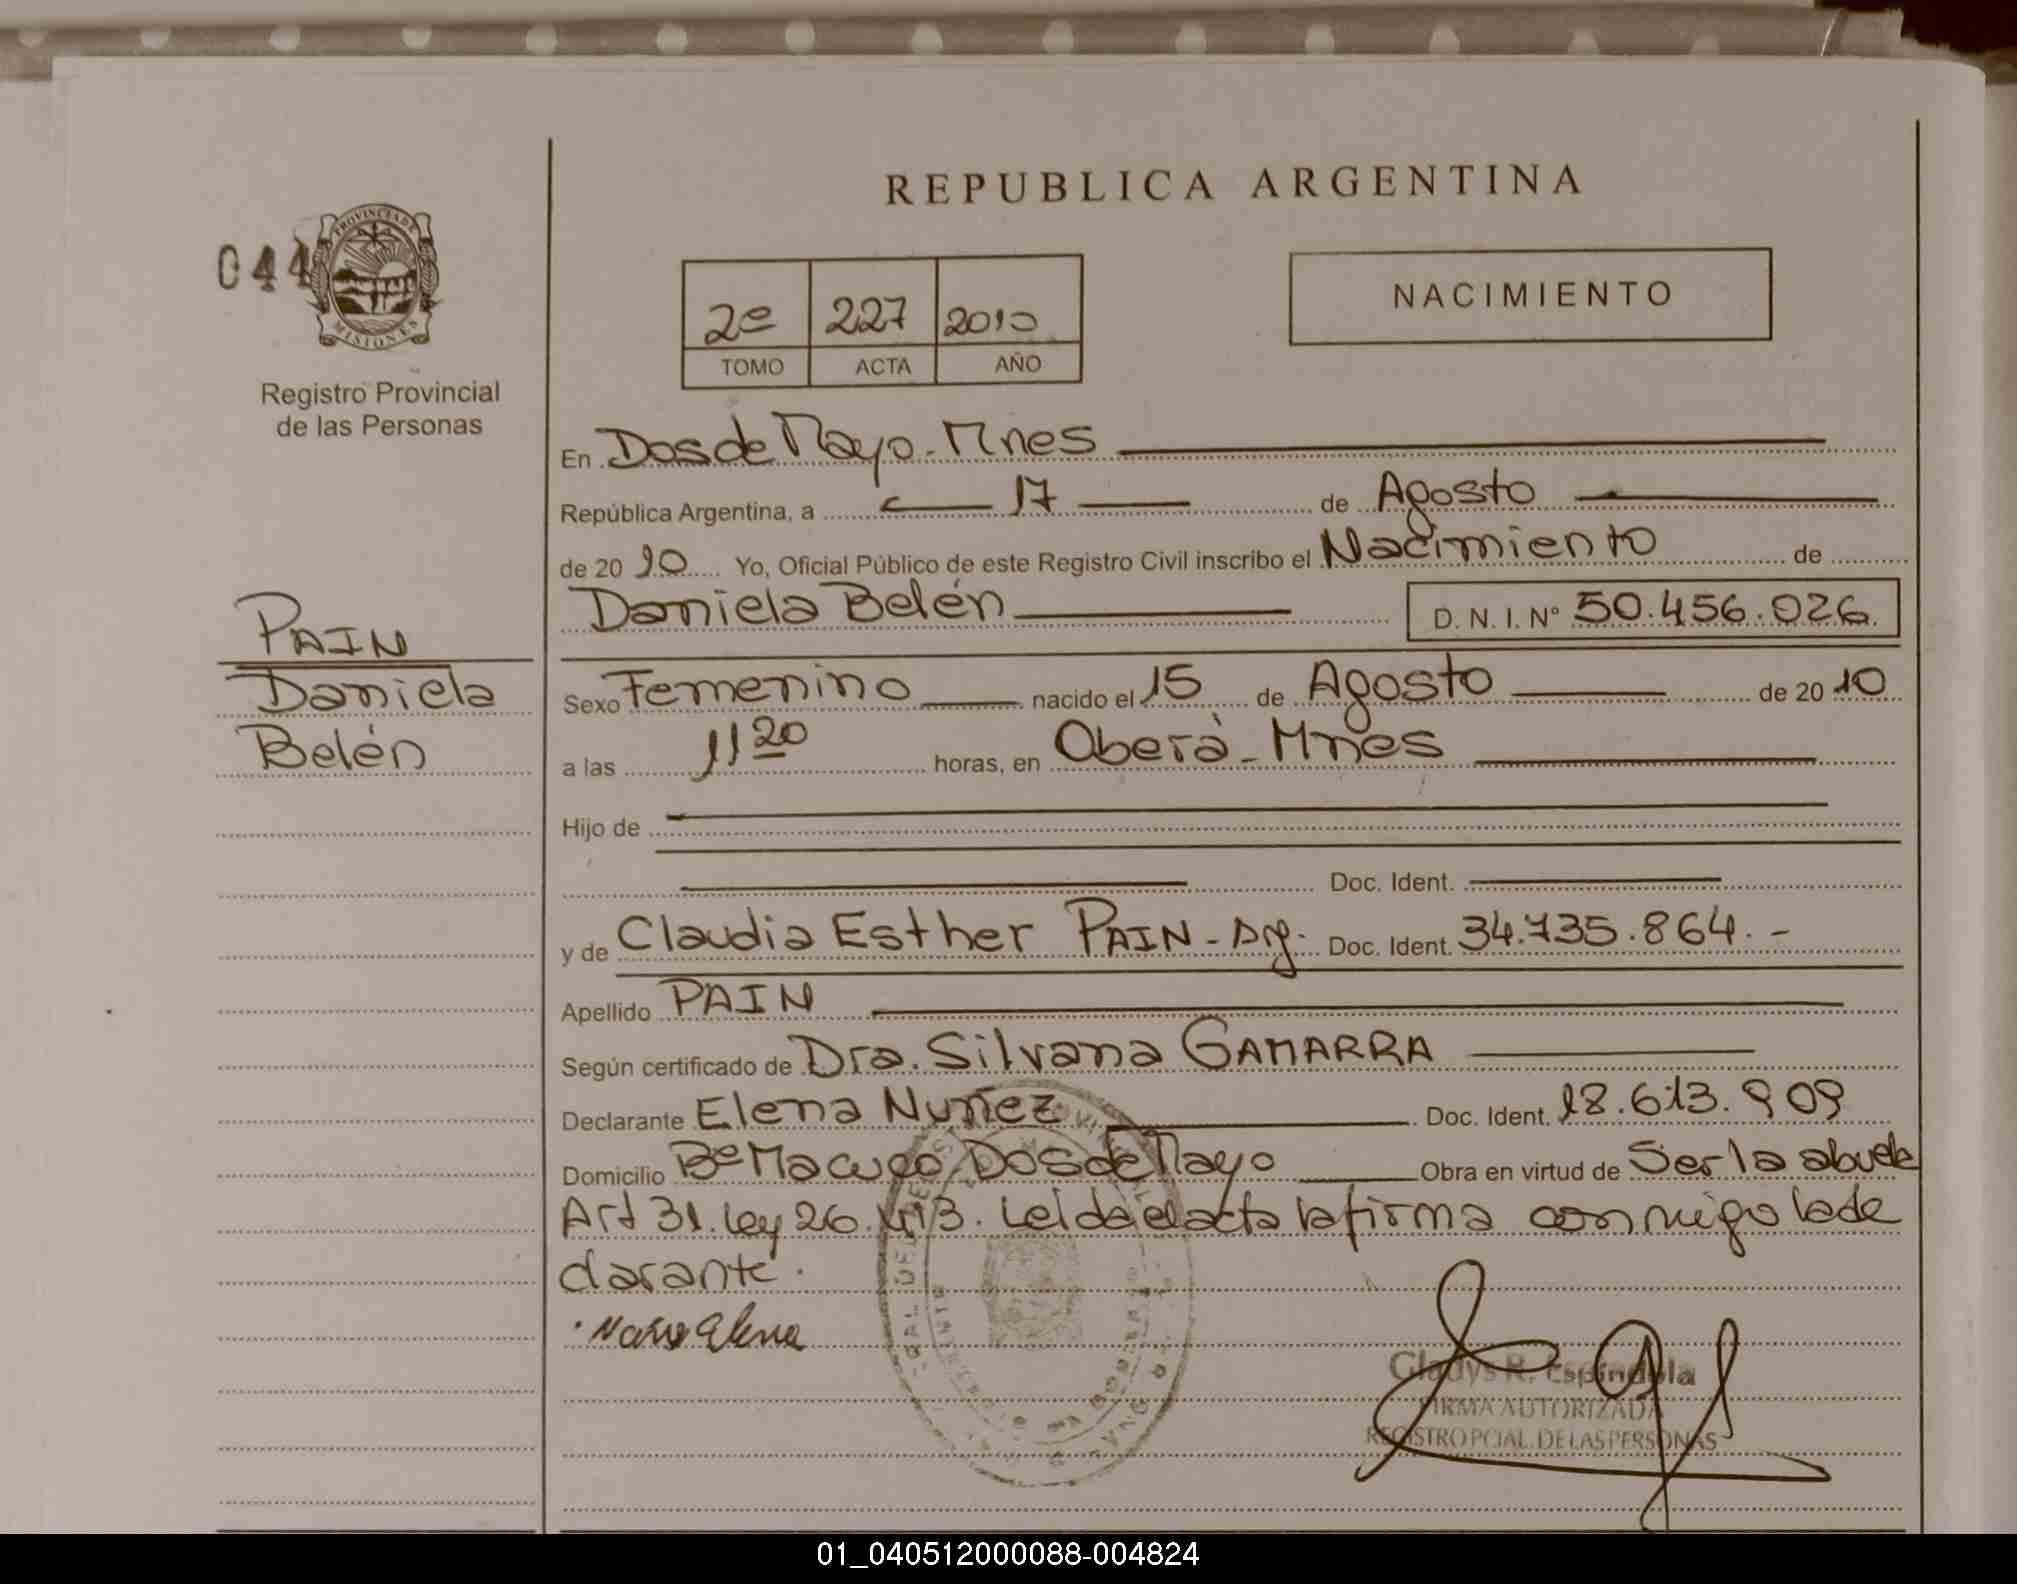 REPUBLICA ARGENTINA
044
PROVINCIA DE MISIONES
Registro Provincial
de las Personas
2º 227 2010
TOMO ACTA AÑO
NACIMIENTO
En Dos de Mayo - Mnes
República Argentina, a 17 de Agosto
de 20 10 Yo, Oficial Público de este Registro Civil inscribo el Nacimiento de
Daniela Belén D. N. I. Nº 50.456.026
PAIN
Daniela
Belén
Sexo Femenino nacido el 15 de Agosto de 20 10
a las 11 20 horas, en Oberà - Mnes
Hijo de
Doc. Ident.
y de Claudia Esther PAIN - Arg. Doc. Ident. 34.735.864. -
Apellido PAIN
Según certificado de Dra. Silvana GAMARRA
Declarante Elena Nuñez Doc. Ident. 18.613.909
Domicilio Bº Macuco, Dos de Mayo Obra en virtud de Ser la abuela
Art 31. Ley 26.413. Leida el acta la firma conmigo la de
clarante.
Elena
Gladys R. Espindola
FIRMA AUTORIZADA
REGISTRO PCIAL. DE LAS PERSONAS
01_040512000088-004824